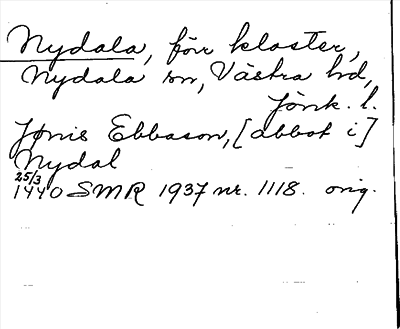 Nydala, förr kloster,
Nydala sn, Västra hd,
Jönk. l.
Jønis Ebbason, [abbot i]
Nydal
25/3
1440 SMR 1937 nr. 1118. orig.